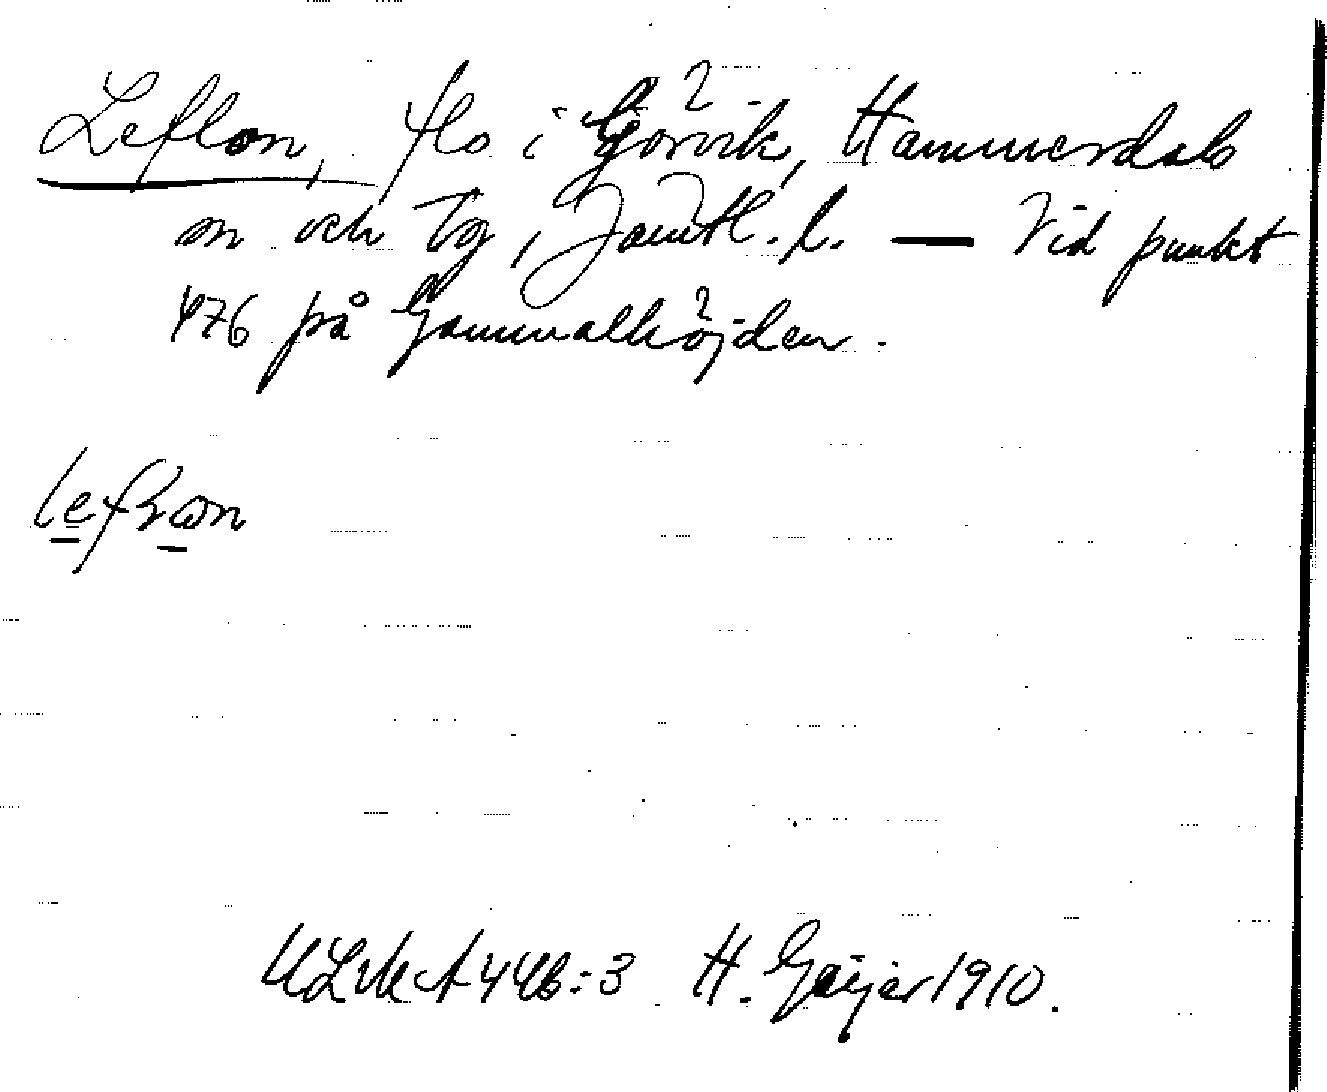 Leflon, flo i Görvik, Hammerdals
sn och tg, Jämtl. l. — Vid punkt
476 på Gammalhöjden.
ULMA 446:3 H. Geijer 1910.